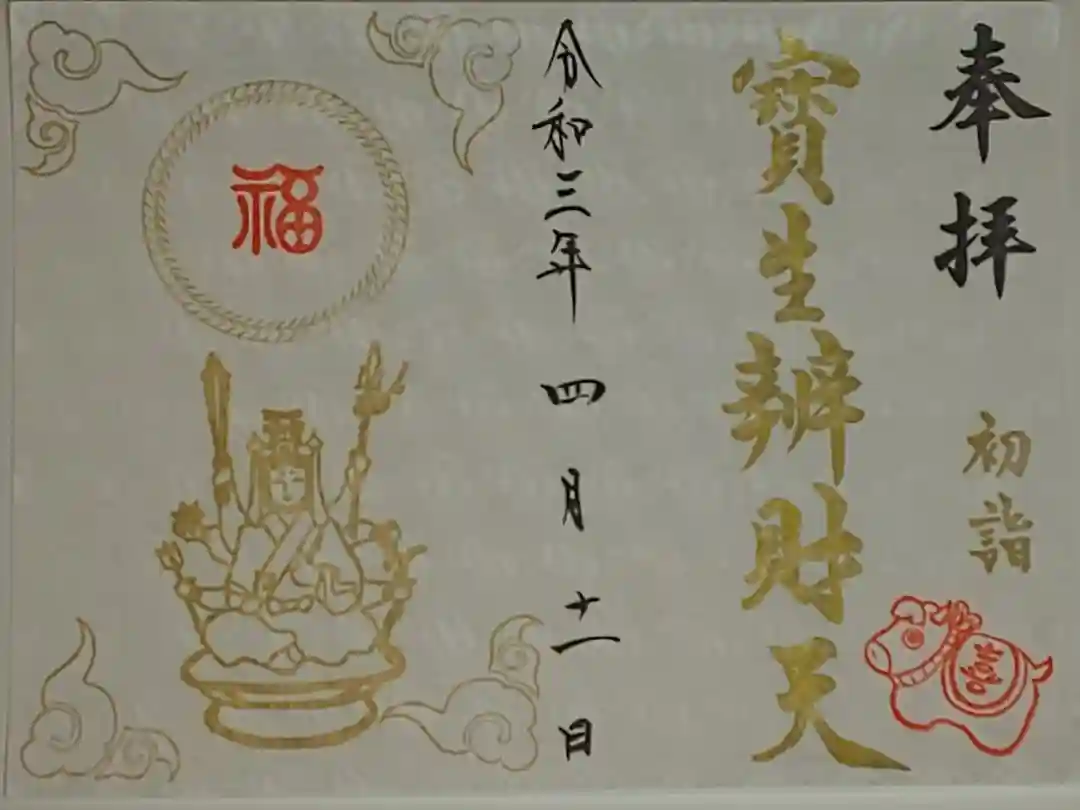 奉拝
初詣
寶生辨財天
令和三年四月十一日
福